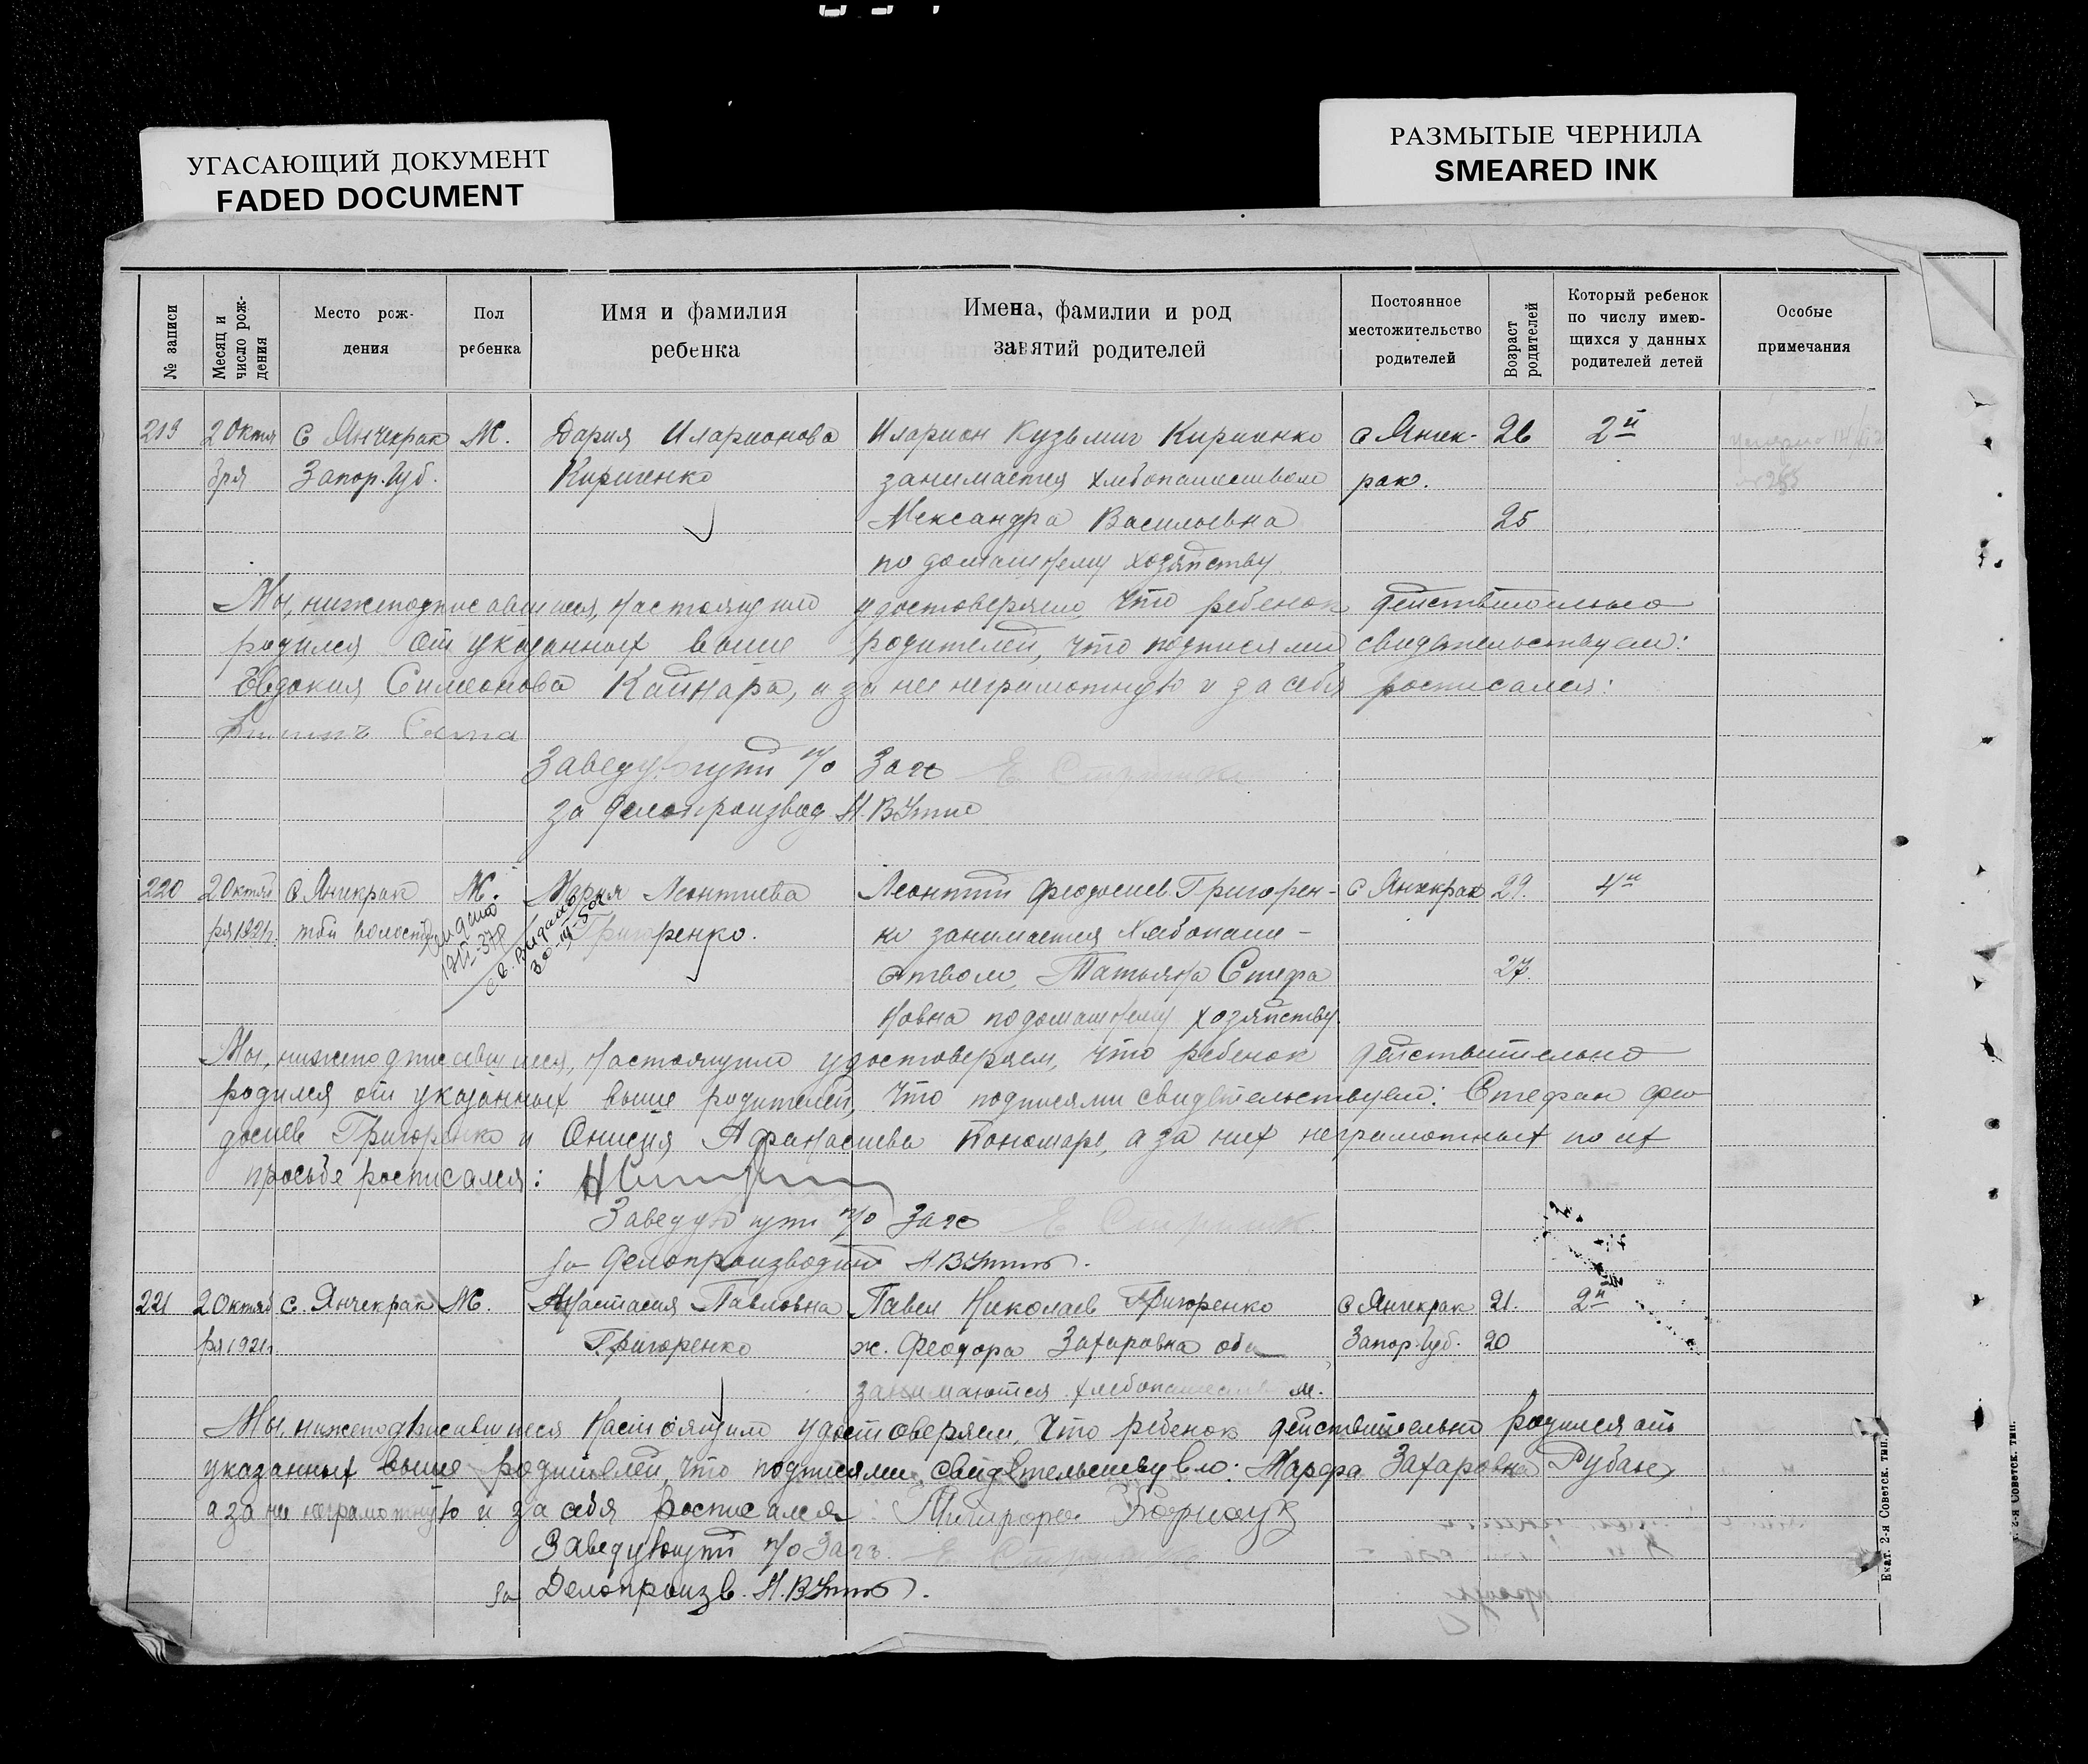 УГАСАЮЩИЙ ДОКУМЕНТ
FADED DOCUMENT
РАЗМЫТЫЕ ЧЕРНИЛА
SMEARED INK
№ записи
Месяц и число рождения
Место рож-
дения
Пол
ребенка
Имя и фамилия
ребенка
Имена, фамилии и род
занятий родителей
Постоянное
местожительство
родителей
Возраст родителей
Который ребенок
по числу имею-
щихся у данных
родителей детей
Особые
примечания
219 2 Октя с Янчекрак Ж. Дария Иларионова Иларион Кузьмич Кириенко с Янчек- 26 2й
бря Запор. Губ. Кириенко занимается хлебопашеством рак.
Александра Васильевна 25
по домашнему хозяйству
Мы, нижеподписавшиеся, настоящимо удостоверяем, что ребенок действительно
родился от указанных выше родителей, что подписями свидетельствуем:
Евдокия Симеонова Кайнара, а за нее неграмотную и за себя росписался:
Заведующий п/о Загс
за делопроизвод Н.
220 2 Октяб с Янчекрак Ж. Мария Леонтиева Леонтий Феодосиев Григорен- с Янчекрак 29. 4й
ря 1921г. той волости Григоренко. ко занимается хлебопаше-
выдано
св. выдано
ством, Татьяна Стефа 27.
новна по домашнему хозяйству.
Мы, нижеподписавшиеся, настоящимо удостоверяем, что ребенок действительно
родился от указанных выше родителей, что подписями свидетельствуем: Стефан Фео
досиев Григоренко и Онисия Афанасиева Пономарь, а за них неграмотных по их
просьбе росписался:
Заведующий п/о Загс
за делопроизводит
221 2 Октяб с. Янчекрак Ж. Анастасия Павловна Павел Николаев Григоренко с Янчекрак 21. 2й
ря 1921г. Григоренко ж. Феодора Захаровна оба Запор. Губ. 20
занимаются хлебопашеством.
Мы, нижеподписавшиеся настоящимо удостоверяем, что ребенок действительно родился от
указанных выше родителей, что подписями свидетельствуем: Марфа Захаровна Рубан,
а за не неграмотную и за себя росписался:
Заведующий п/о Загс
за Делопроизв.
Екат. 2-я Советск. тип.
2-я Советск. тип.